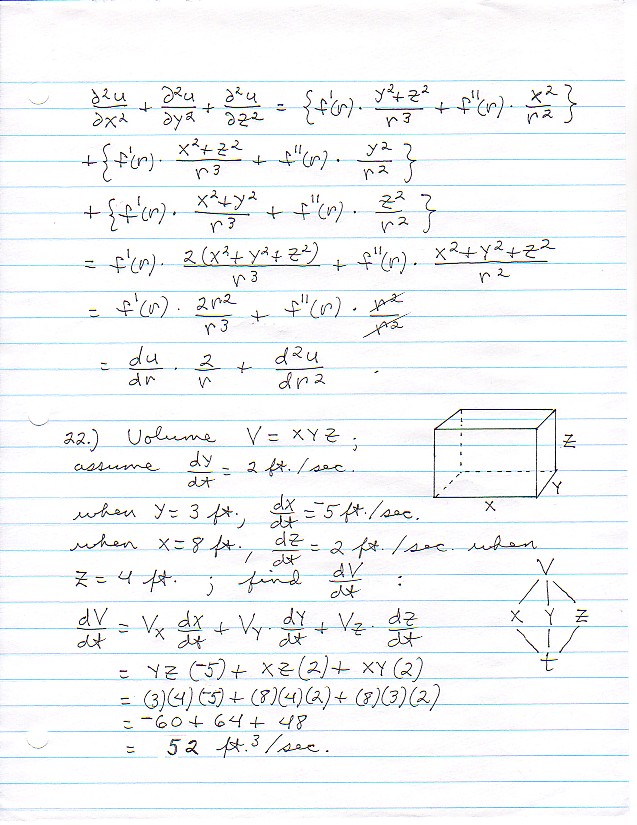 ∂²u/∂x² + ∂²u/∂y² + ∂²u/∂z² = {f'(r) · (y²+z²)/r³ + f''(r) · x²/r²}
+ {f'(r) · (x²+z²)/r³ + f''(r) · y²/r²}
+ {f'(r) · (x²+y²)/r³ + f''(r) · z²/r²}
= f'(r) · 2(x²+y²+z²)/r³ + f''(r) · (x²+y²+z²)/r²
= f'(r) · 2r²/r³ + f''(r) · r²/r²
= du/dr · 2/r + d²u/dr² .
22.) Volume V = XYZ ;
assume dy/dt = 2 ft./sec.
when Y = 3 ft., dx/dt = ⁻5 ft./sec.
when X = 8 ft., dz/dt = 2 ft./sec. when
Z = 4 ft. ; find dV/dt :
Z
Y
X
V
X Y Z
t
dV/dt = Vx dx/dt + Vy · dy/dt + Vz · dz/dt
= YZ(⁻5) + XZ(2) + XY(2)
= (3)(4)(⁻5) + (8)(4)(2) + (8)(3)(2)
= ⁻60 + 64 + 48
= 52 ft.³/sec.